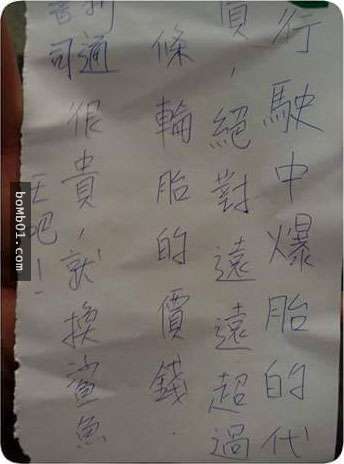 行駛中爆胎的代
價，絕對遠遠超過
條輪胎的價錢.
普利司通很貴，就換鯊魚
王吧！
boMb01.com